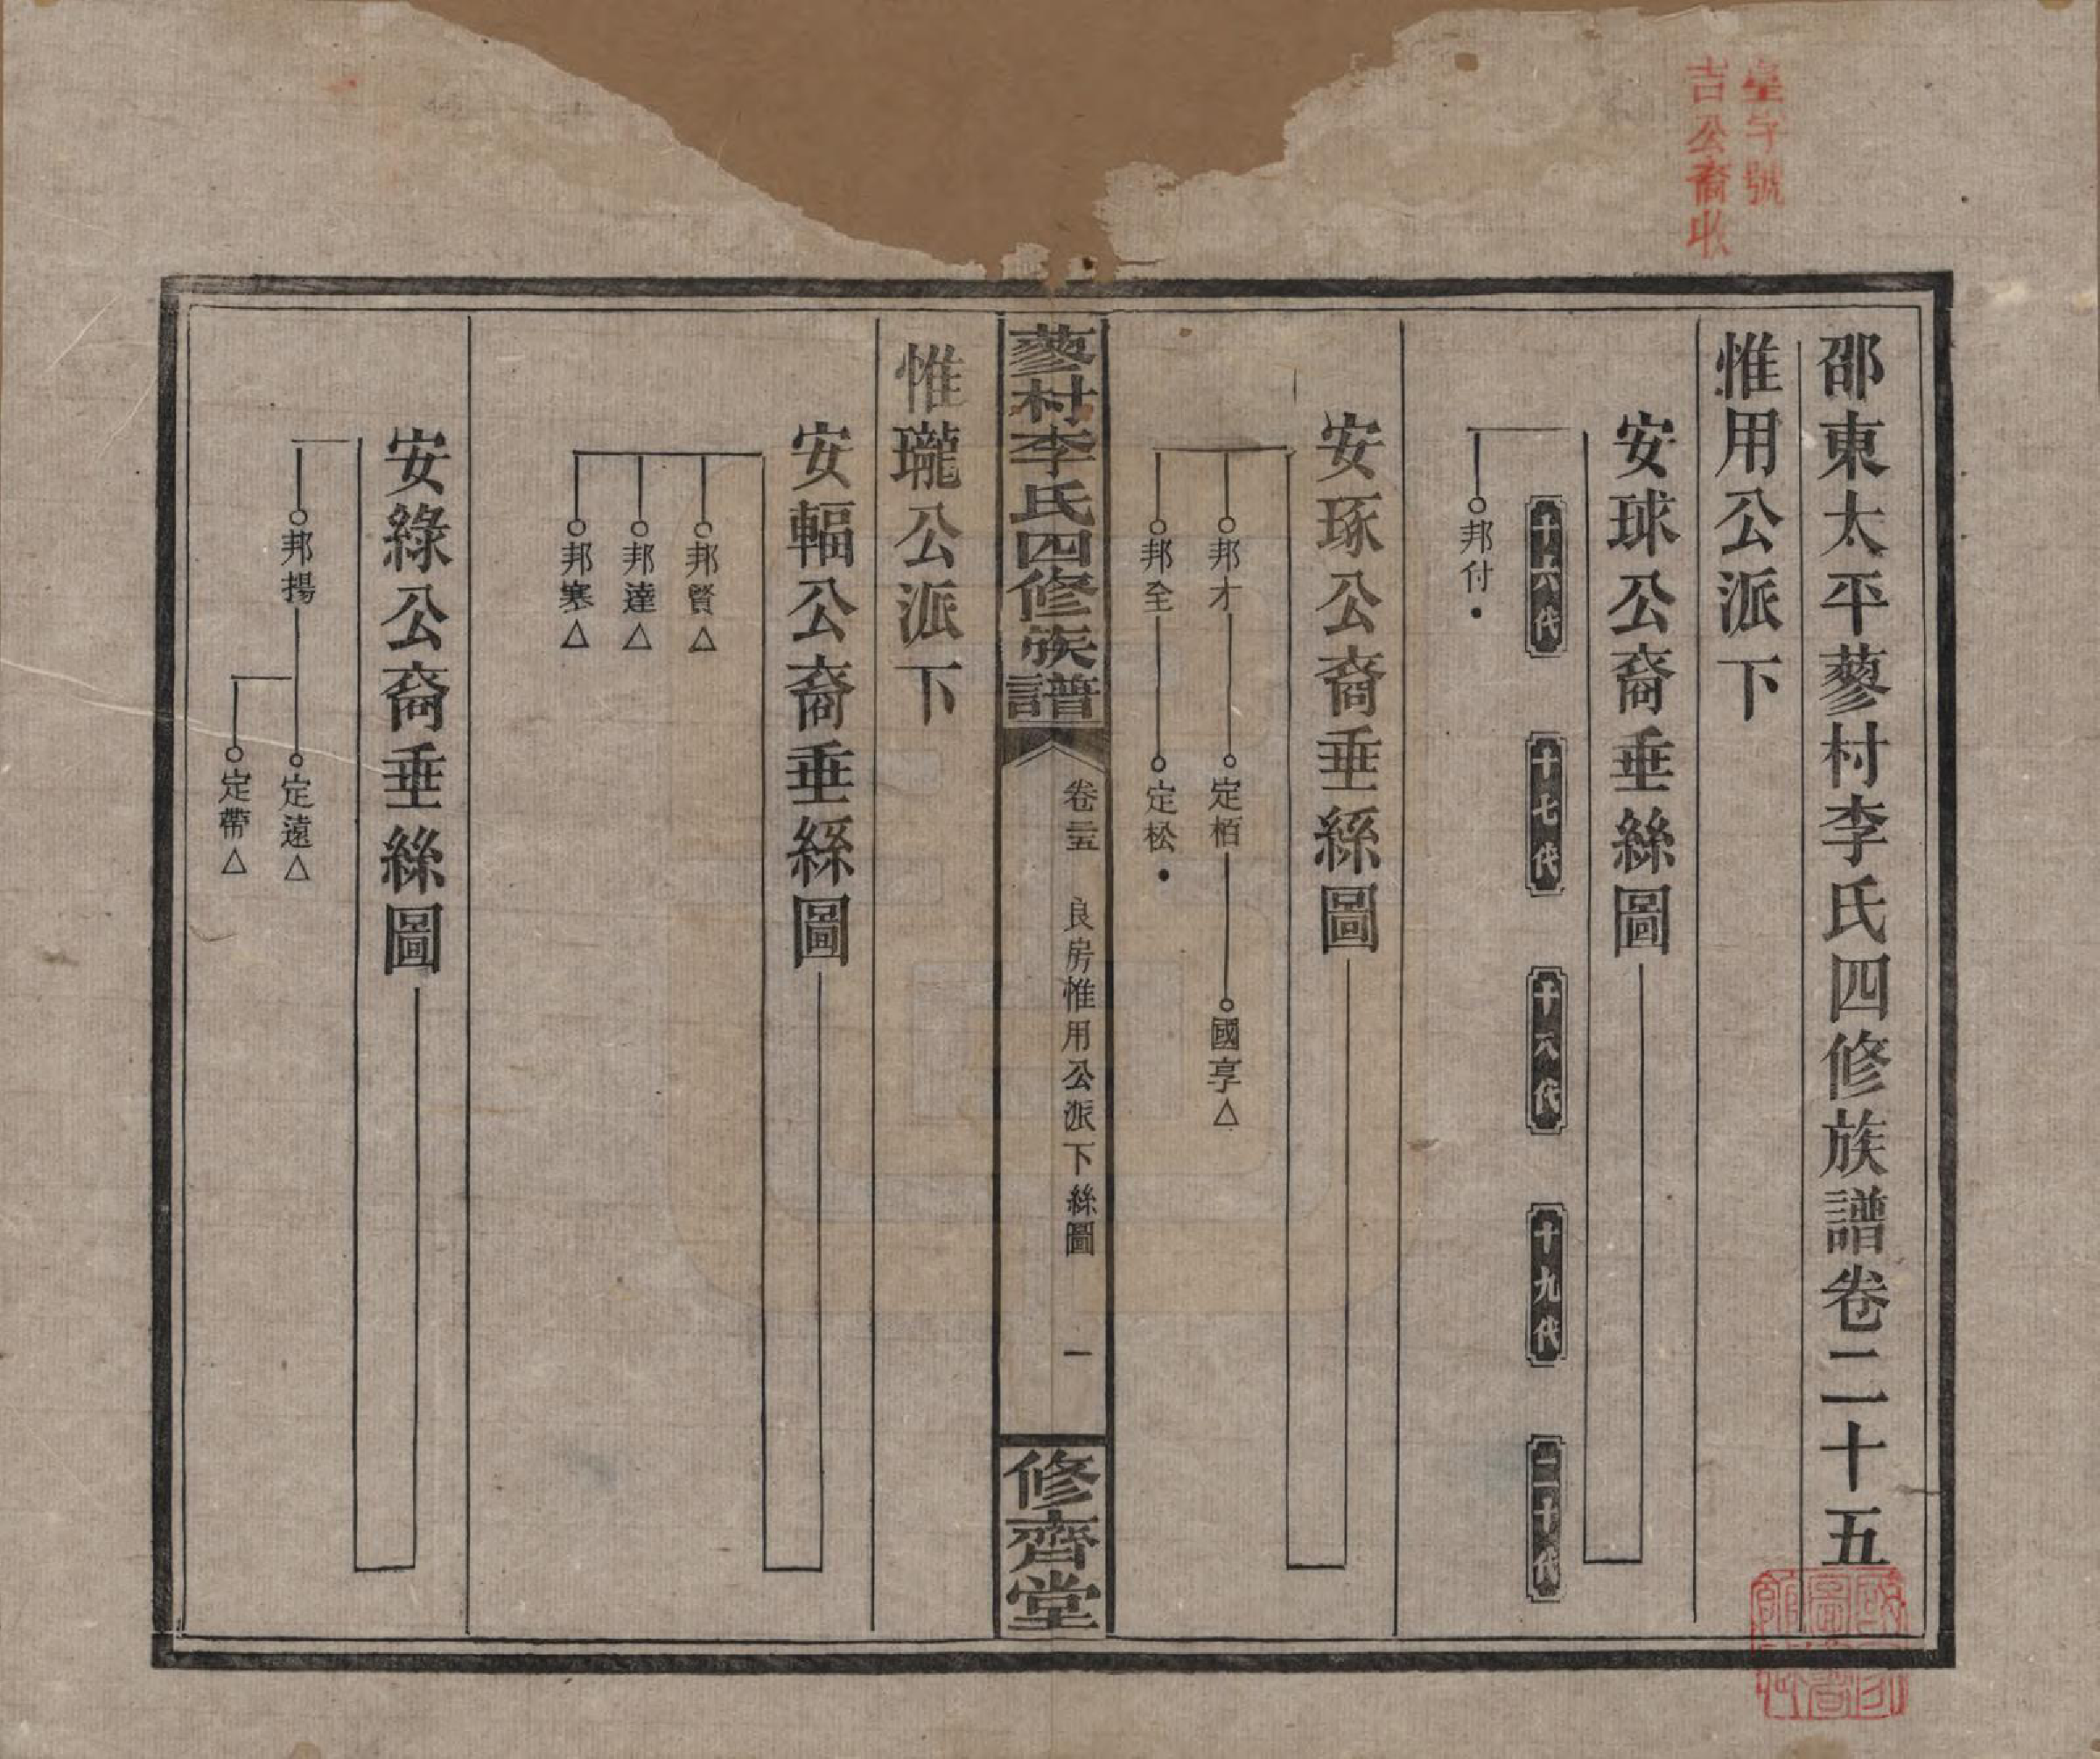 邵東太平蓼村李氏四修族譜卷二十五
惟用公派下
安球公裔垂絲圖
十六代
十七代
十八代
十九代
二十代
邦付
安琢公裔垂絲圖
邦才
定栢
國享△
邦全
定松
蓼村李氏四修族譜
卷二十五
良房惟用公派下絲圖
一
修齊堂
惟瓏公派下
安輻公裔垂絲圖
邦賢△
邦達△
邦寒△
安綠公裔垂絲圖
邦揚
定遠△
定帶△
字號
吉公裔收